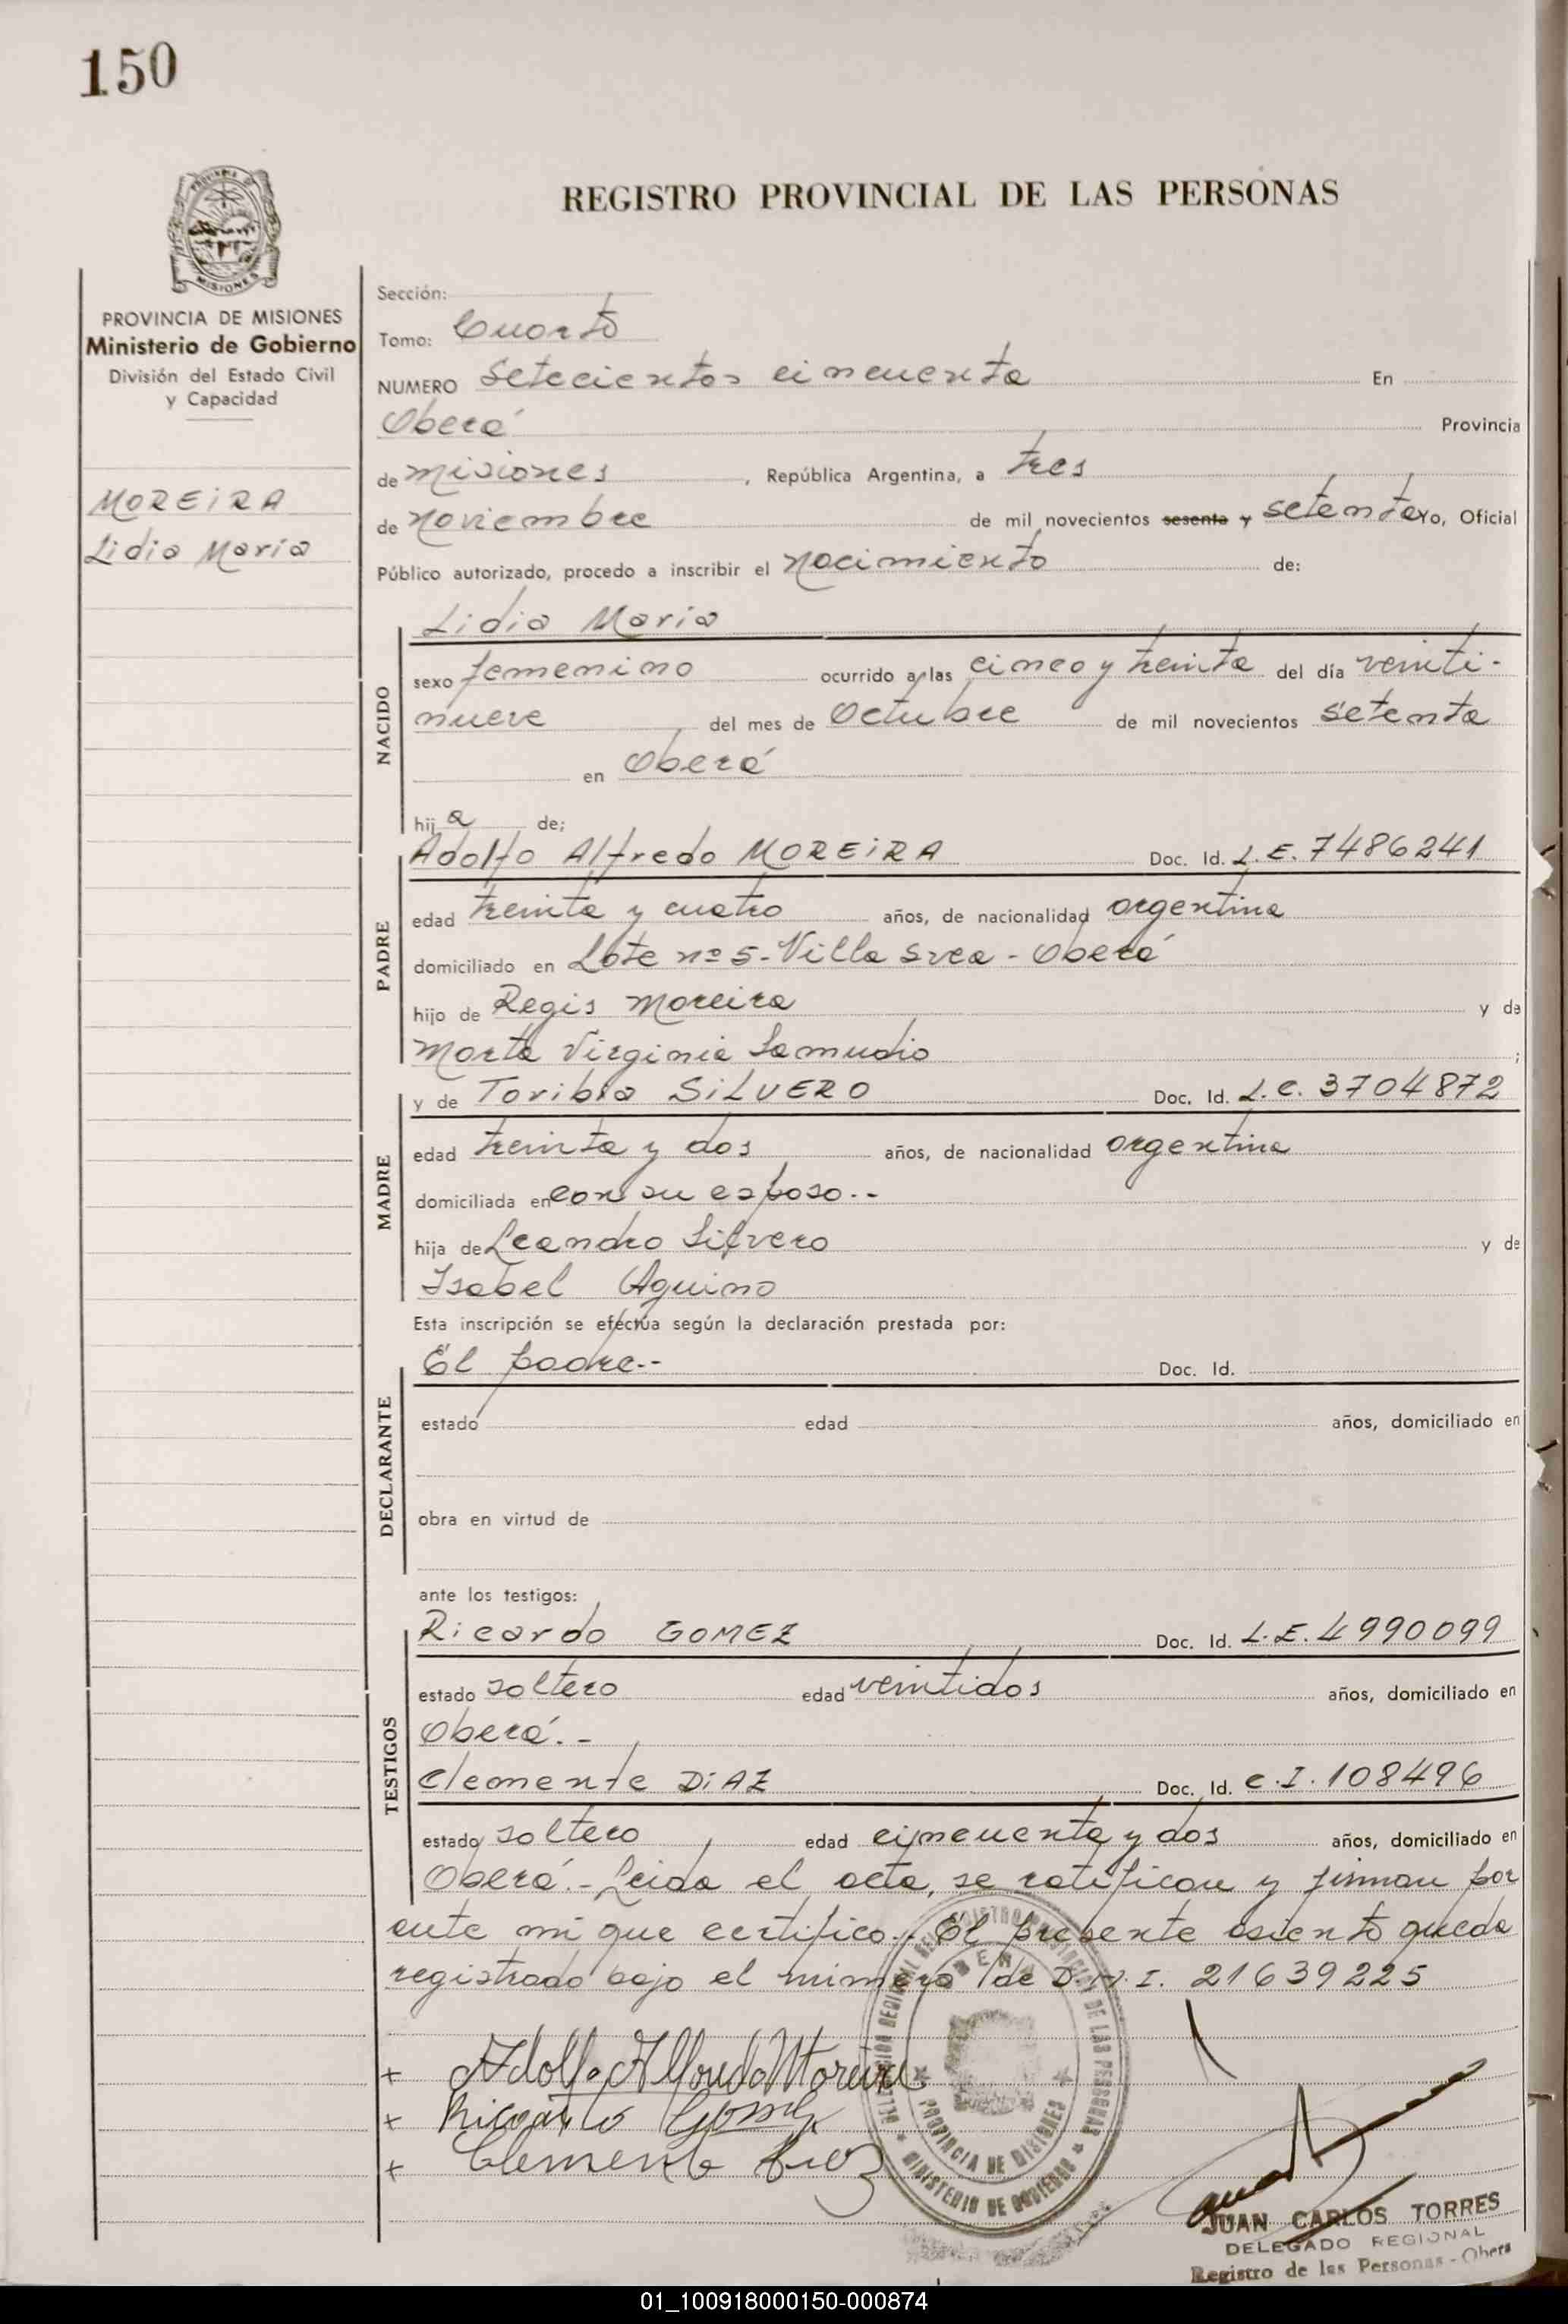 150
REGISTRO PROVINCIAL DE LAS PERSONAS
PROVINCIA DE MISIONES
Ministerio de Gobierno
División del Estado Civil
y Capacidad
MOREIRA
Lidia María
Sección:
Tomo: Cuarto
NUMERO Setecientos cincuenta En
Oberá Provincia
de Misiones, República Argentina, a tres
de noviembre de mil novecientos sesenta y setenta yo, Oficial
Público autorizado, procedo a inscribir el nacimiento de:
NACIDO
Lidia María
sexo femenino ocurrido a las cinco y treinta del día veinti-
nueve del mes de Octubre de mil novecientos setenta
en Oberá
hija de;
PADRE
Adolfo Alfredo MOREIRA Doc. Id. L.E. 7486241
edad treinta y cuatro años, de nacionalidad argentina
domiciliado en Lote nº 5-Villa Svea - Oberá
hijo de Regis Moreira y de
Marta Virginia Samudio;
MADRE
y de Toribia SILVERO Doc. Id. L.C. 3704872
edad treinta y dos años, de nacionalidad argentina
domiciliada en con su esposo.--
hija de Leandro Silvero y de
Isabel Aquino
Esta inscripción se efectúa según la declaración prestada por:
DECLARANTE
El padre.-- Doc. Id.
estado edad años, domiciliado en
obra en virtud de
ante los testigos:
TESTIGOS
Ricardo GOMEZ Doc. Id. L.E. 4990099
estado soltero edad veintidos años, domiciliado en
Oberá.-
Clemente DIAZ Doc. Id. C.I. 108496
estado soltero edad cincuenta y dos años, domiciliado en
Oberá.- Leida el acta, se ratifican y firman por
ante mí que certifico.- El presente asiento queda
registrado bajo el número de D.N.I. 21639225
+ Adolfo Alfredo Moreira
+ Ricardo Gomez
+ Clemente Diaz
DELEGACION REGIONAL DEL REGISTRO PROVINCIAL DE LAS PERSONAS
OBERA
PROVINCIA DE MISIONES
MINISTERIO DE GOBIERNO
JUAN CARLOS TORRES
DELEGADO REGIONAL
Registro de las Personas - Obera
01_100918000150-000874